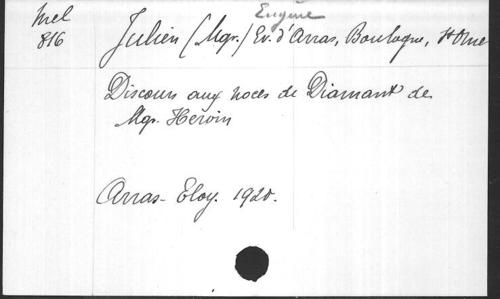 Mel
816
Eugène
Julien (Mgr.) Ev. d'Arras, Boulogne, St Omer
Discours aux noces de Diamant de
Mgr. Hervin
Arras - Eloy. 1920.